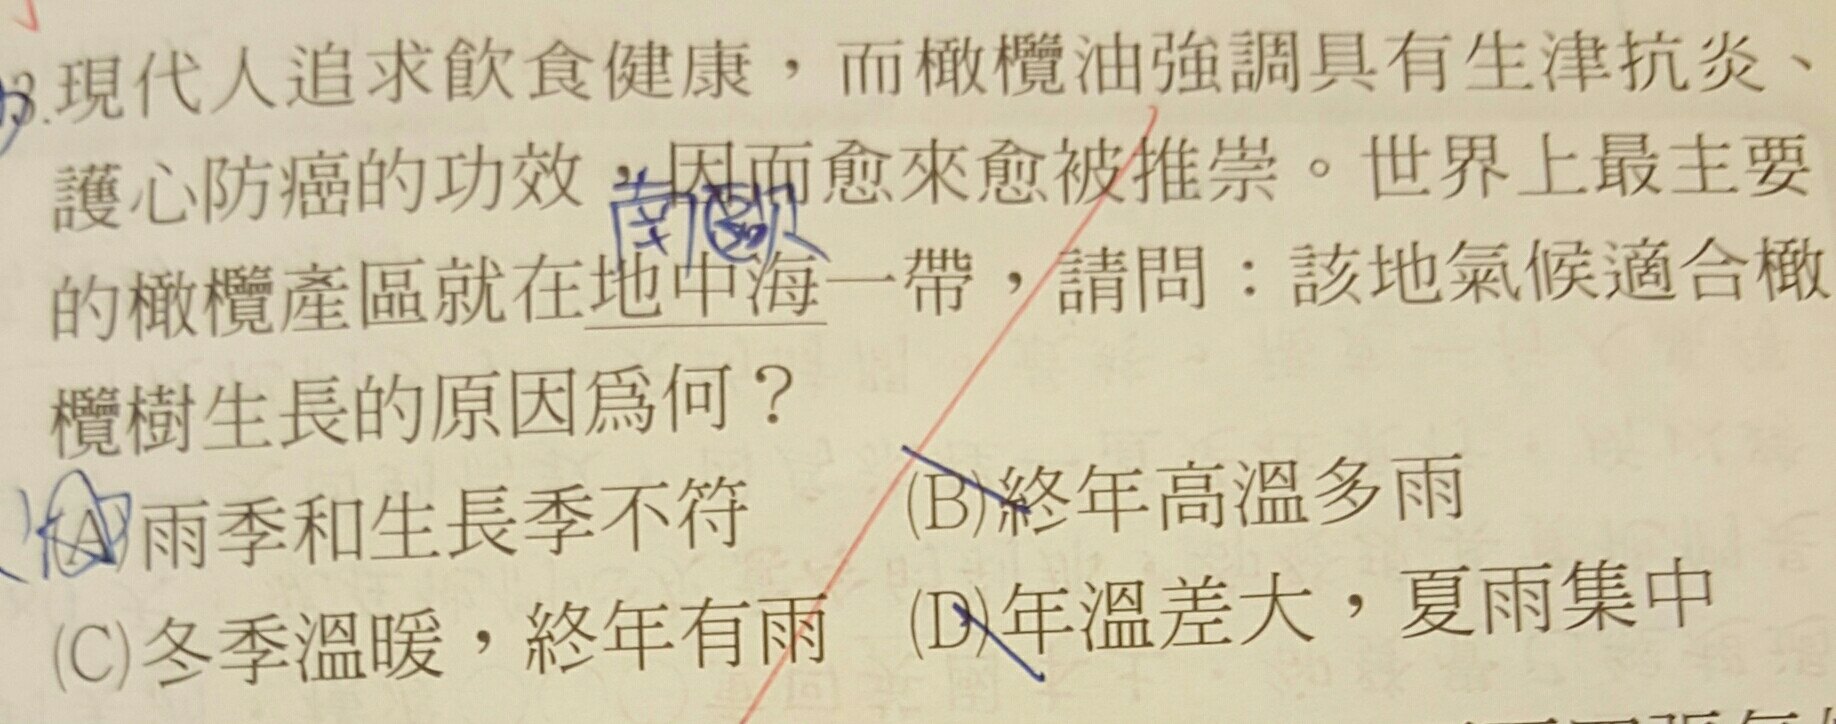 3.現代人追求飲食健康，而橄欖油強調具有生津抗炎、
護心防癌的功效，因而愈來愈被推崇。世界上最主要
南歐
的橄欖產區就在地中海一帶，請問：該地氣候適合橄
欖樹生長的原因爲何？
(A)雨季和生長季不符 (B)終年高溫多雨
(C)冬季溫暖，終年有雨 (D)年溫差大，夏雨集中